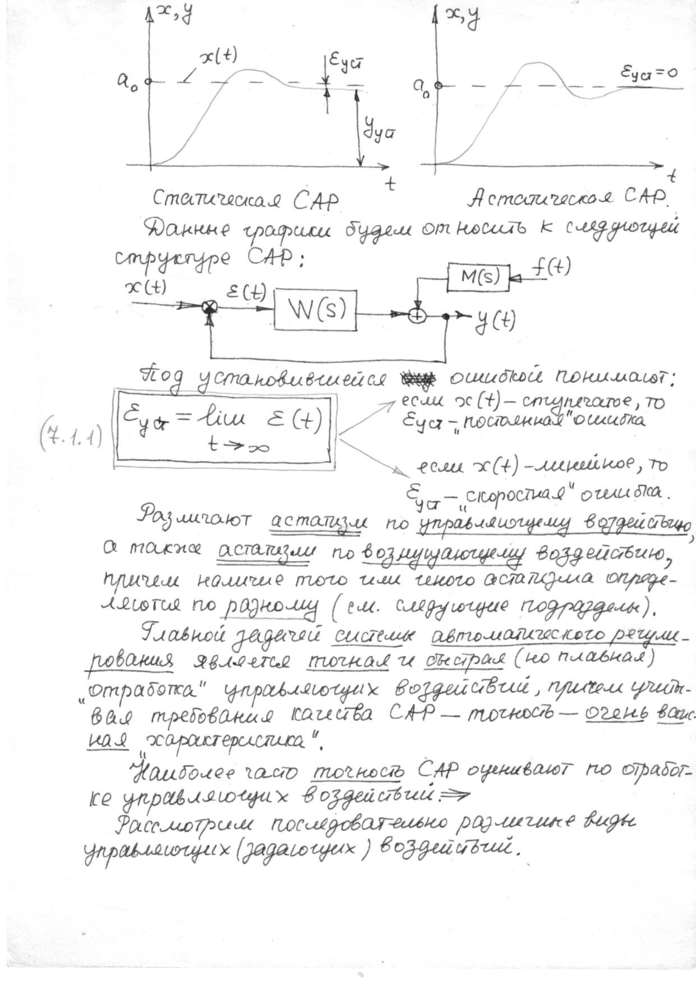 x, y
x, y
x(t)
εуст
εуст=0
a₀
a₀
yуст
t
t
Статическая САР
Астатическая САР.
Данные графики будем относить к следующей
структуре САР:
M(s)
f(t)
x(t)
ε(t)
W(s)
y(t)
Под установившейся ошибкой понимают:
если x(t) – ступенчатое, то
εуст – „постоянная" ошибка
(7.1.1)
εуст = lim ε(t)
t→∞
если x(t) – линейное, то
εуст – „скоростная" ошибка.
Различают астатизм по управляющему воздействию,
а также астатизм по возмущающему воздействию,
причем наличие того или иного астатизма опреде-
ляются по разному (см. следующие подразделы).
Главной задачей системы автоматического регули-
рования является точная и быстрая (но плавная)
„отработка" управляющих воздействий, причем учиты-
вая требования качества САР – точность – очень важ-
ная „характеристика".
Наиболее часто точность САР оценивают по отработ-
ке управляющих воздействий. ⇒
Рассмотрим последовательно различные виды
управляющих (задающих) воздействий.